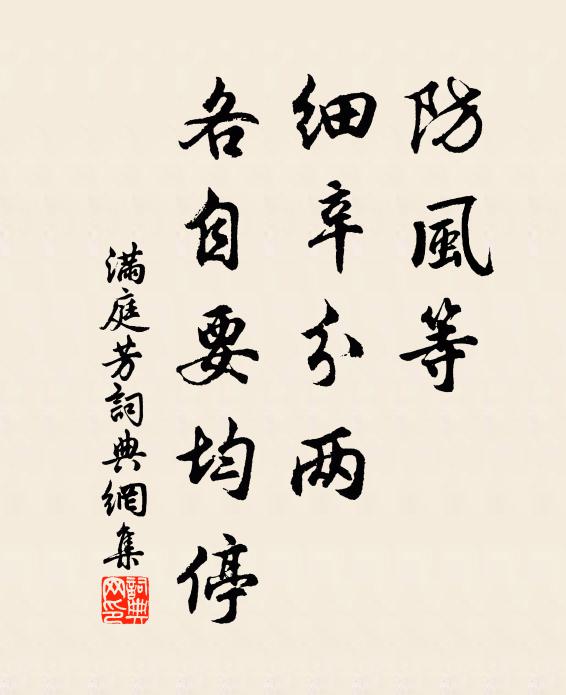 防風等
細辛分两
各自要均停
滿庭芳詞典網集
詞典网印